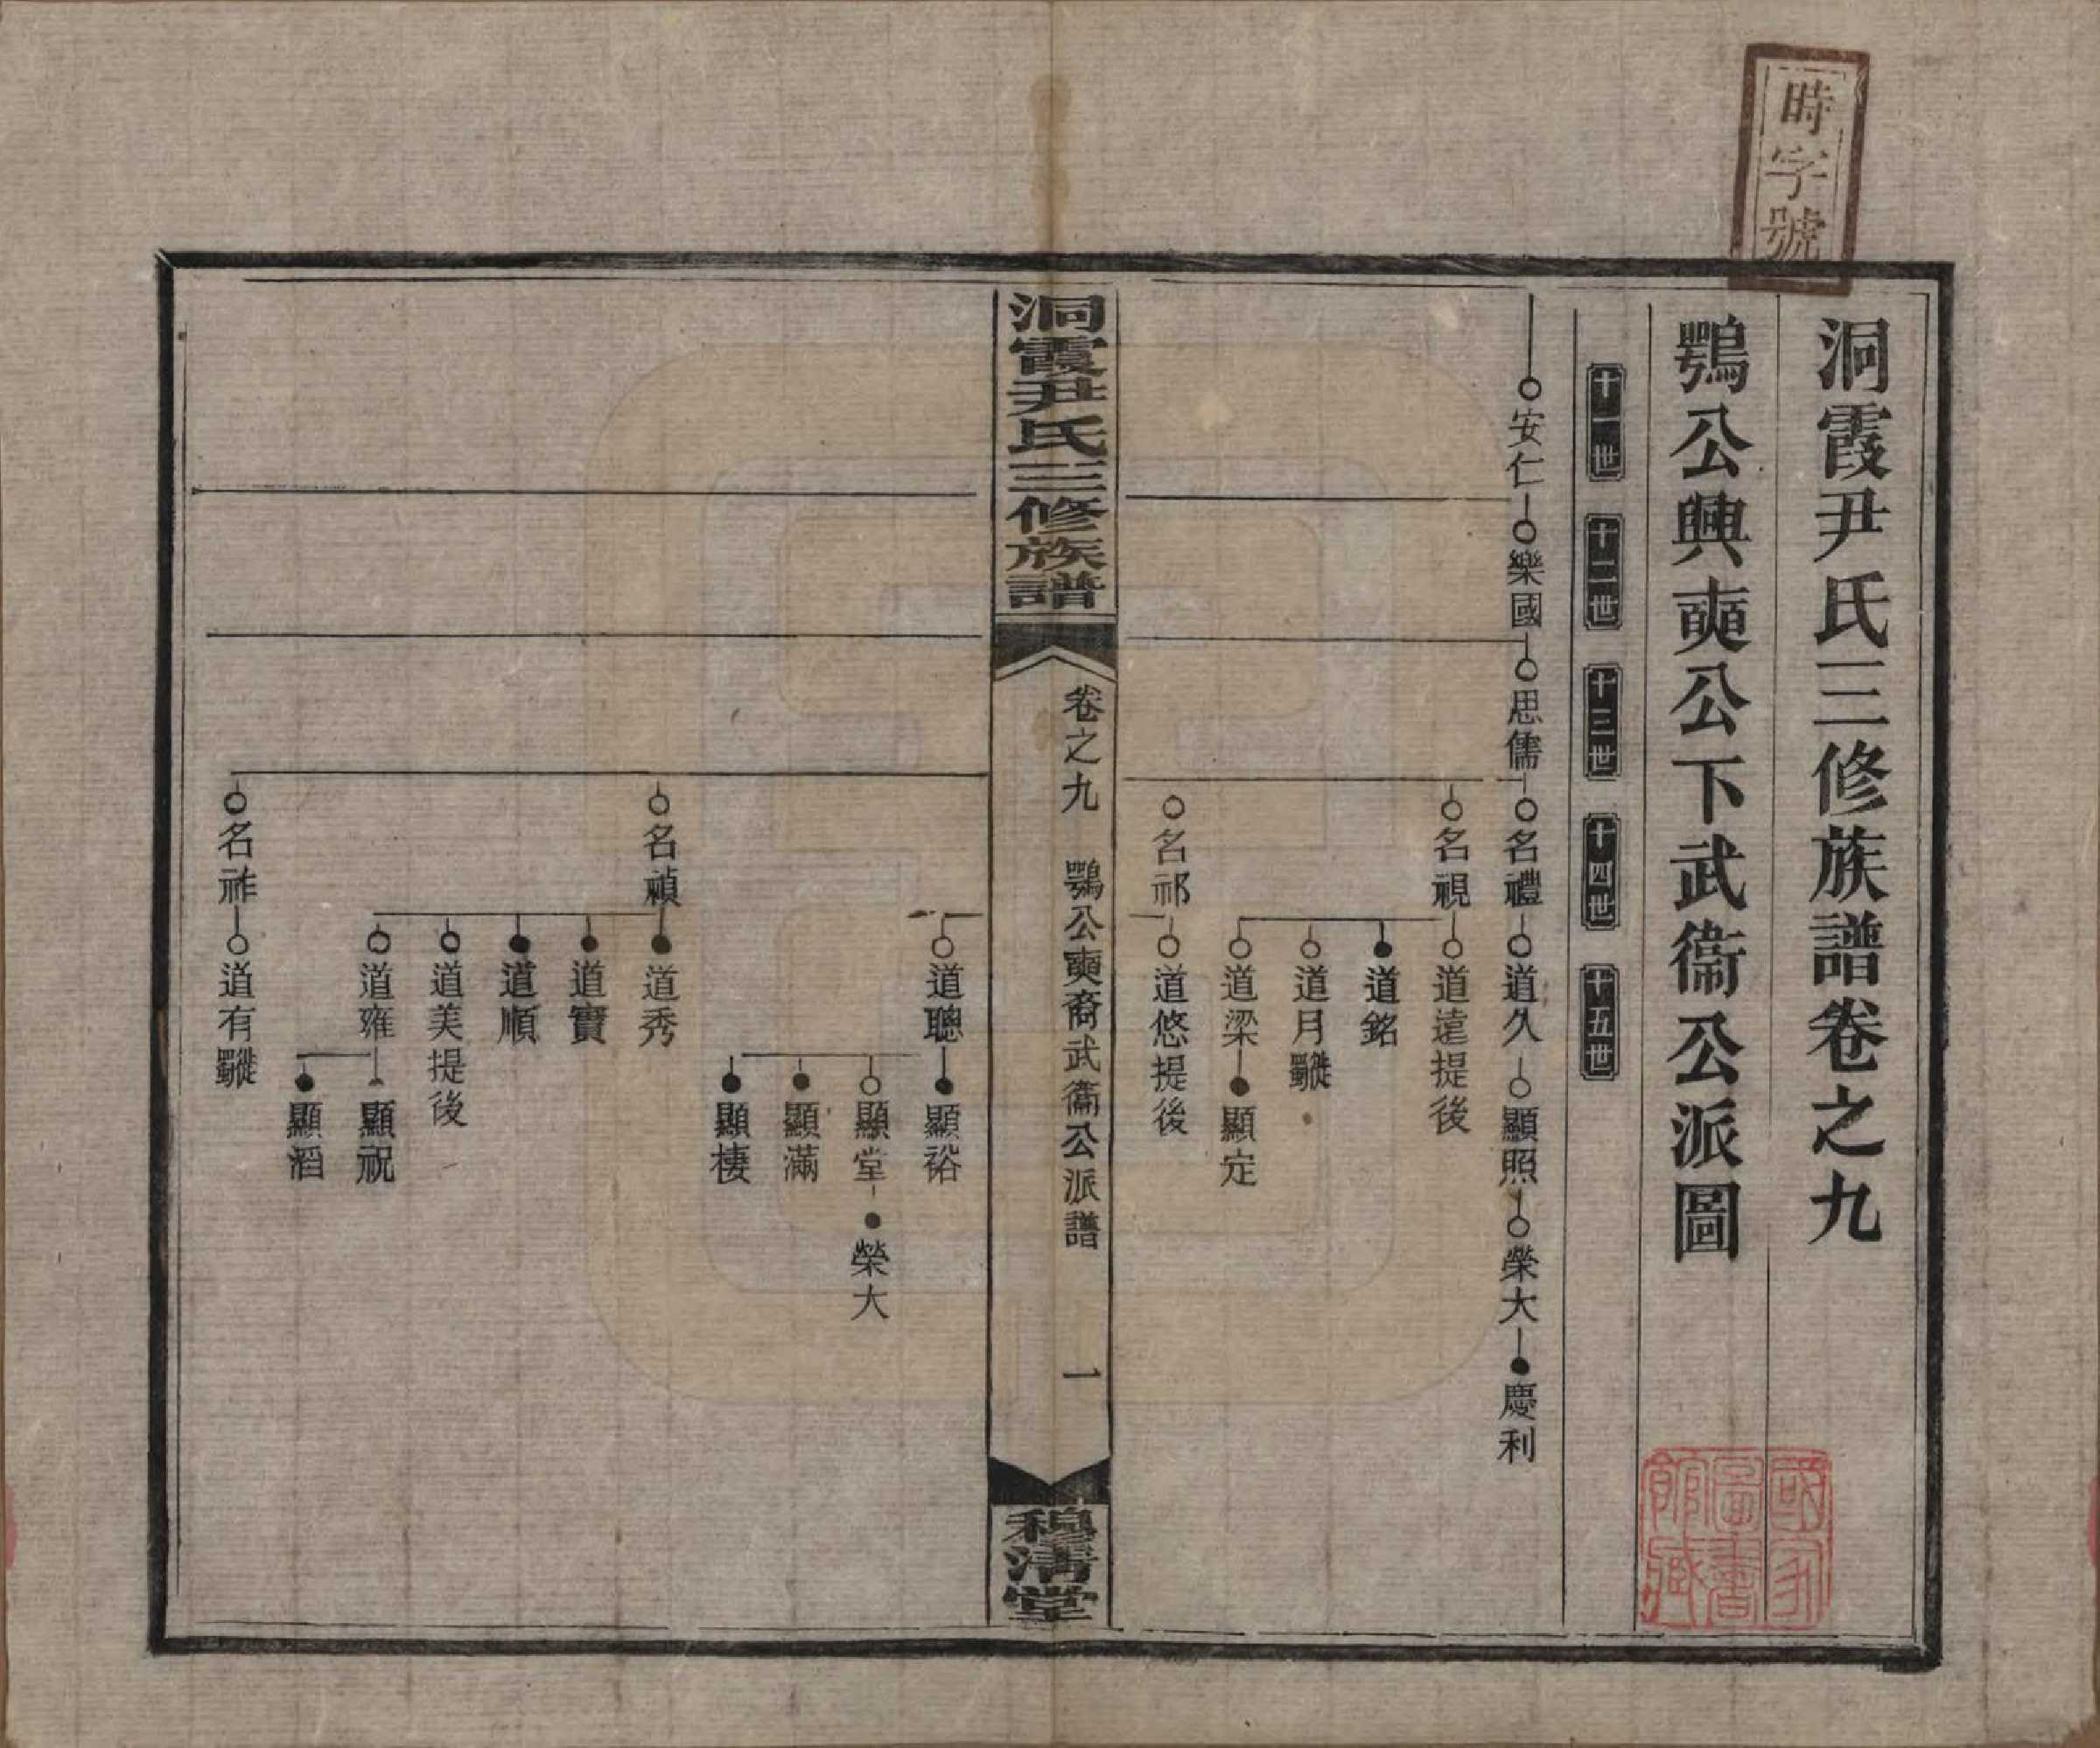 時字號
洞霞尹氏三修族譜卷之九
鶚公興奭公下武衞公派圖
十一世 十二世 十三世 十四世 十五世
安仁 樂國 思儒 名禮 道久 顯照 榮大 慶利
名視 道遠提後
道銘
道月
道梁 顯定
名祁 道悠提後
洞霞尹氏三修族譜 卷之九 鶚公奭裔武衞公派譜 一 穆清堂
道聰 顯裕
顯堂 榮大
顯滿
顯棲
名禎 道秀
道寶
道順
道美提後
道雍 顯祝
顯滔
名祚 道有
國家圖書館藏